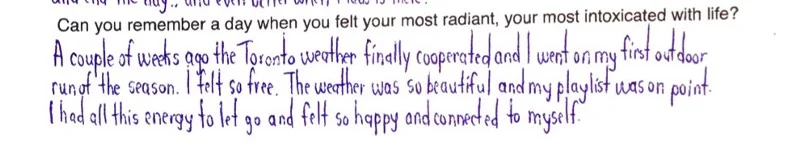 Can you remember a day when you felt your most radiant, your most intoxicated with life?
A couple of weeks ago the Toronto weather finally cooperated and I went on my first outdoor
run of the season. I felt so free. The weather was so beautiful and my playlist was on point.
I had all this energy to let go and felt so happy and connected to myself.